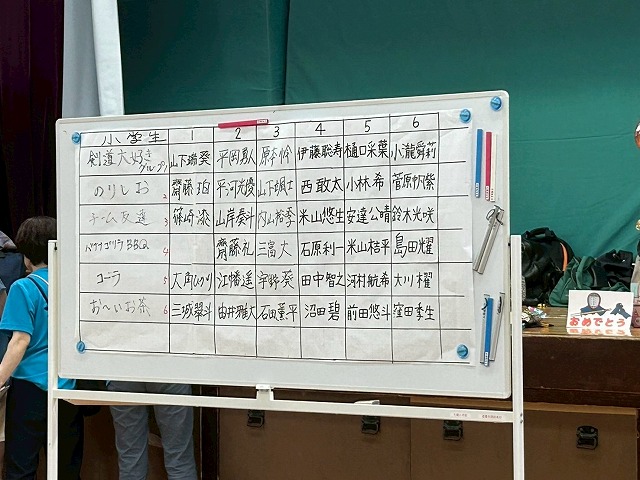 小学生 1 2 3 4 5 6
剣道大好きグループ 1 山下瑞葵 平岡勇人 原本怜 伊藤聡寿 樋口采葉 小瀧舜莉
のりしお 2 齋藤珀 平河光慶 山下颯士 西敢太 小林希 菅原帆紫
チーム友達 3 篠崎湊 山岸奏斗 内山裕季 米山悠生 安達公晴 鈴木光咲
ハワワゴリラBBQ 4 齋藤礼 三富大 石原利一 米山桔平 島田耀
ゴーラ 5 大角ひかり 江幡遥 宇野葵 田中智之 河村航希 大川櫂
おへいお茶 6 三城翠斗 由井雅大 石田薫平 沼田碧 前田悠斗 窪田季生
おめでとう